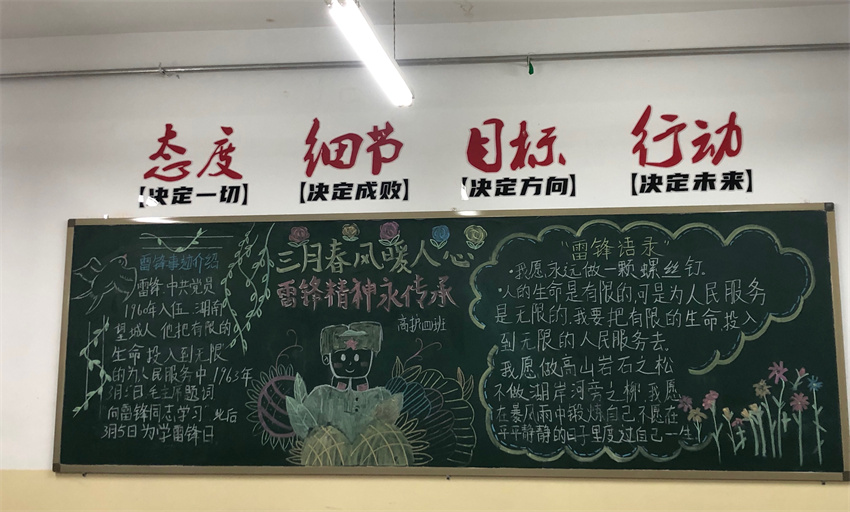 态度 细节 目标 行动
【决定一切】 【决定成败】 【决定方向】 【决定未来】
雷锋事迹介绍
雷锋:中共党员
1960年入伍 湖南
望城人 他把有限的
生命投入到无限
的为人民服务中 1963年
3月5日毛主席题词
向雷锋同志学习 此后
3月5日为学雷锋日
三月春风暖人心
雷锋精神永传承
高护四班
"雷锋语录"
·我愿永远做一颗螺丝钉.
·人的生命是有限的,可是为人民服务
是无限的,我要把有限的生命投入
到无限的人民服务去.
我愿做高山岩石之松
不做湖岸河旁之柳.我愿
在暴风雨中锻炼自己不愿在
平平静静的日子里度过自己一生